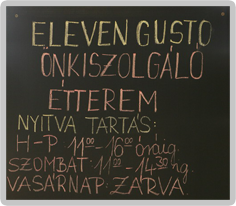 ELEVEN GUSTO
ÖNKISZOLGÁLÓ
ÉTTEREM
NYITVA TARTÁS:
H-P 11⁰⁰-16⁰⁰ óráig.
SZOMBAT: 11⁰⁰-14³⁰ ig.
VASÁRNAP: ZÁRVA